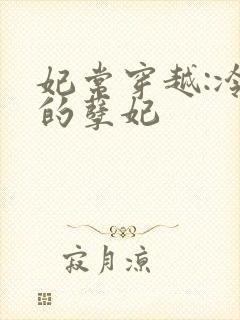 妃常穿越:冷
的孽妃
寂月凉